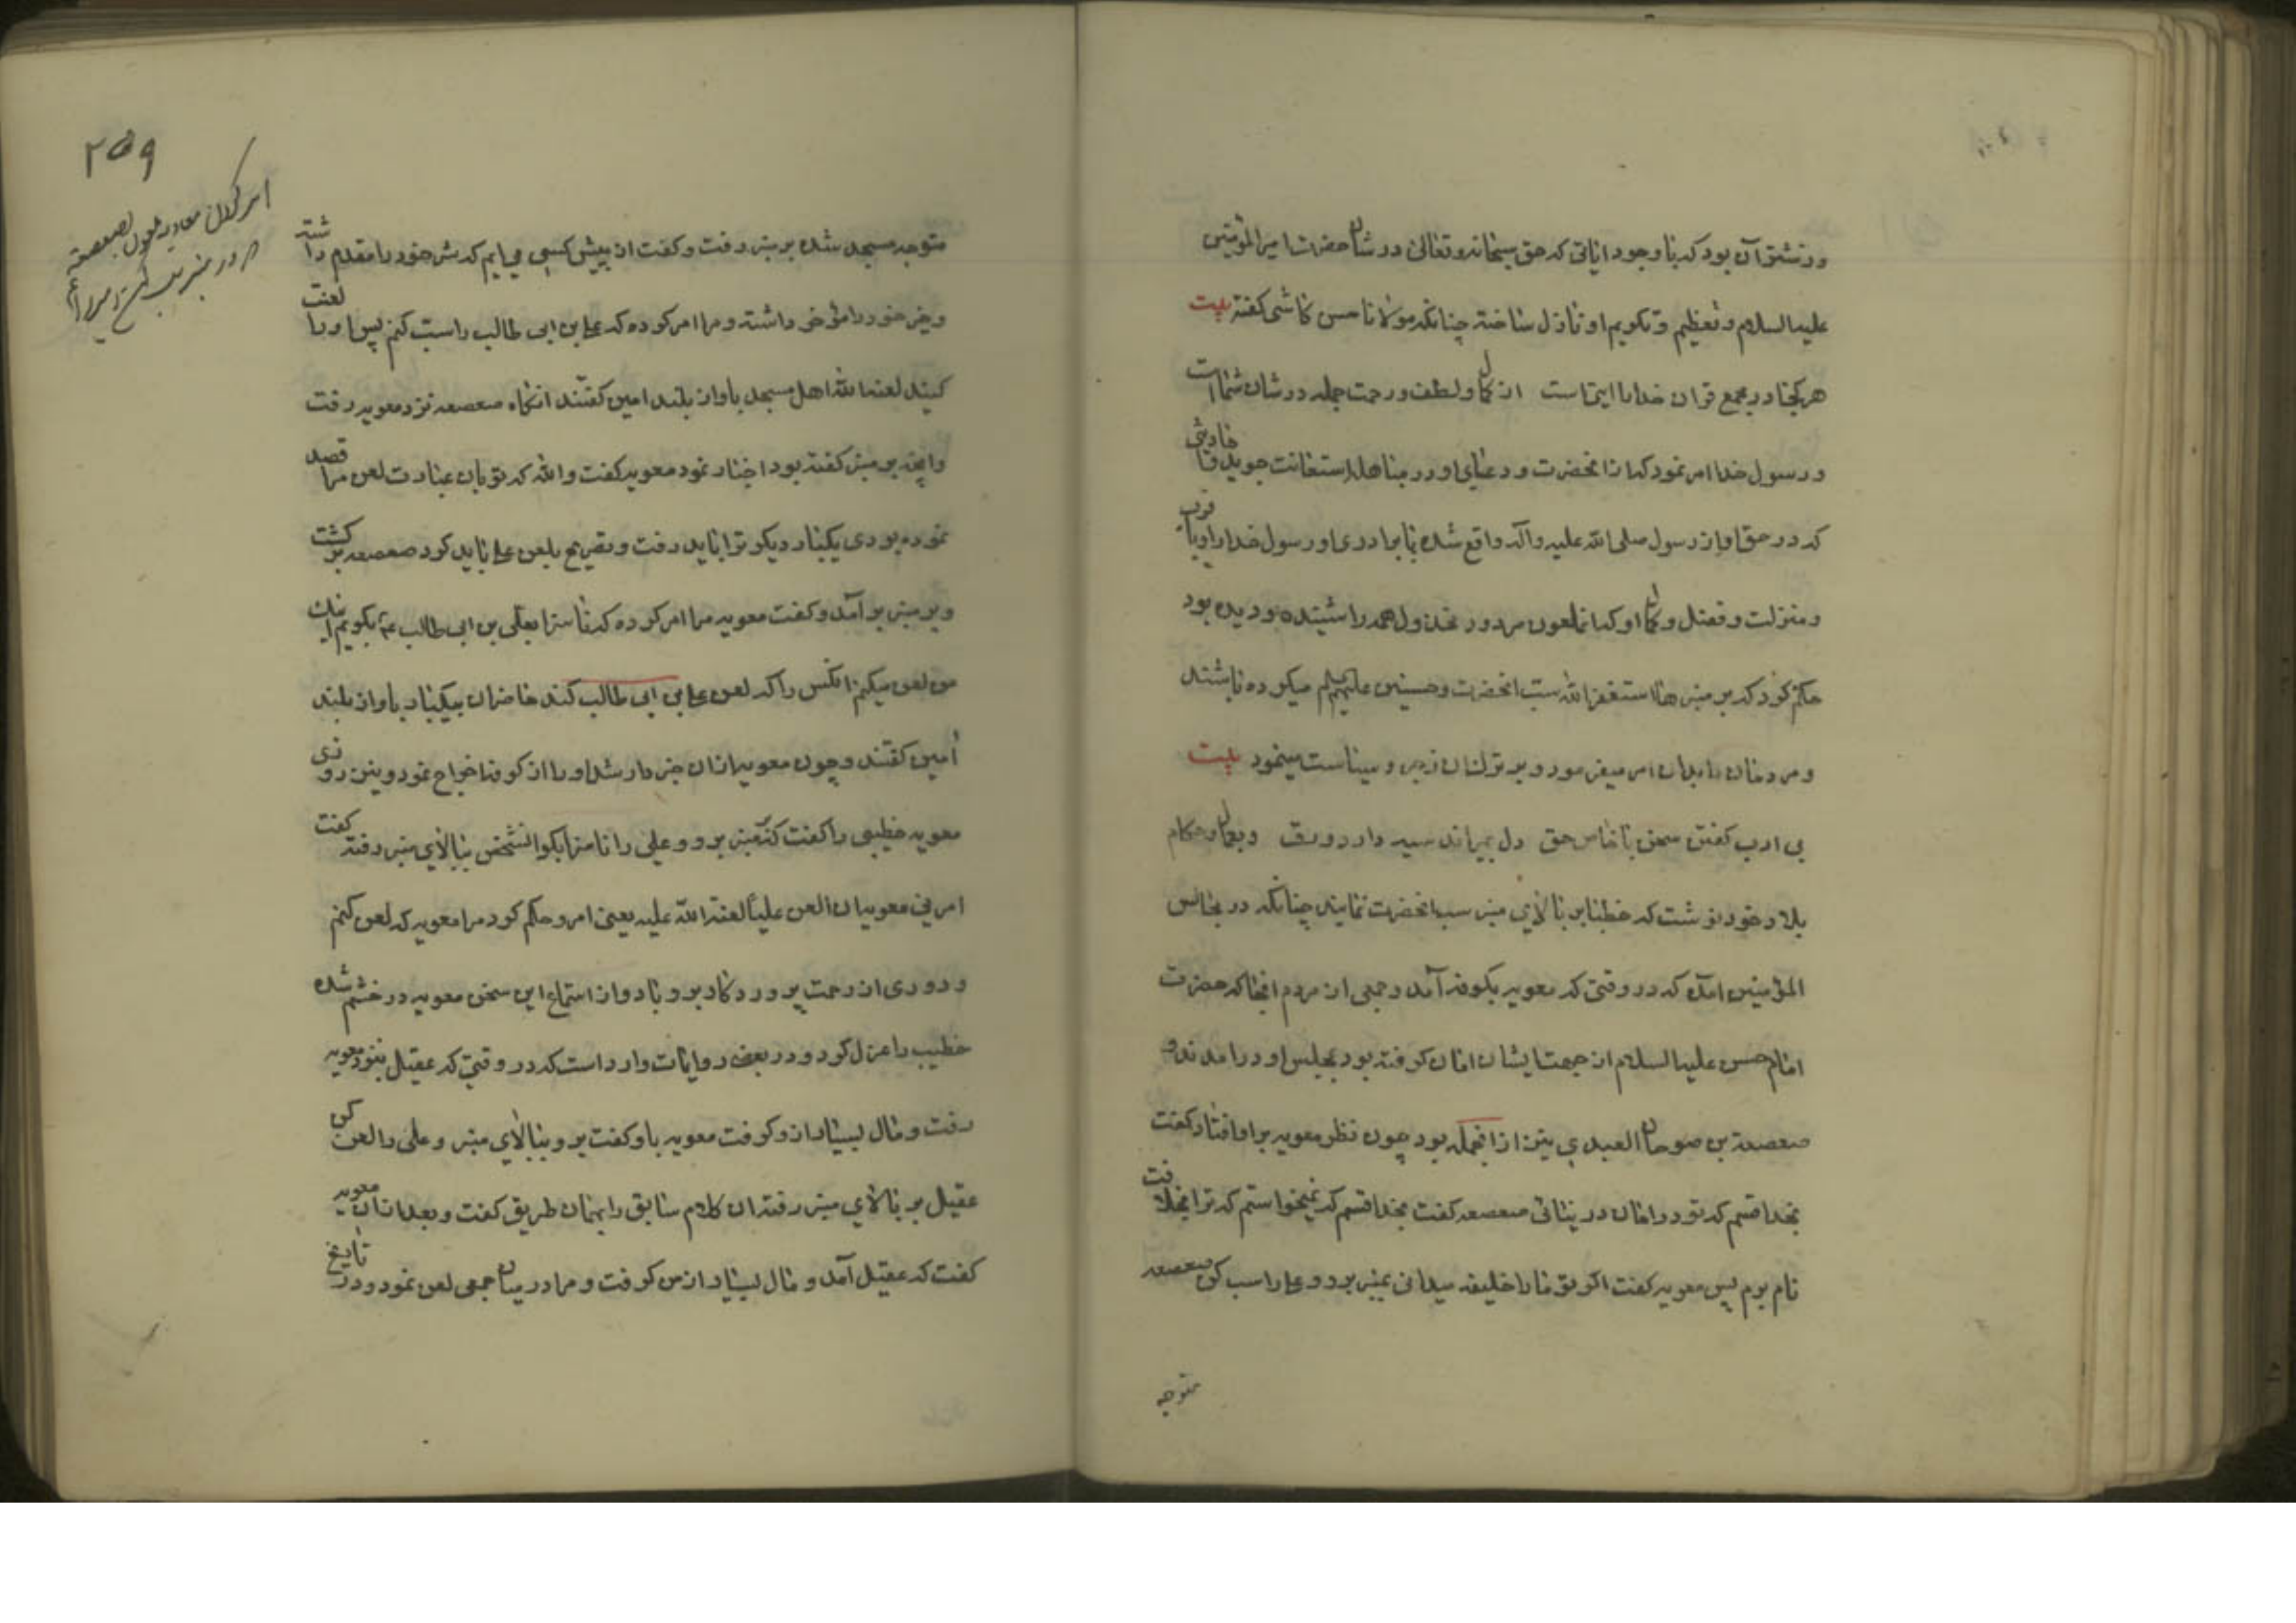 وزشتتر آن بود که با وجود ایاتی که حق سبحانه و تعالی در شان حضرت امیر المؤمنین
علیه السلام و تعظیم و تکریم او نازل ساخته چنانکه مولانا حسن کاشی کفته بیت
هر کجا در مجمع قران خدا را ایتهاست از کمال و لطف و رحمت جمله در شان شماست
و رسول خدا امر نمود که از انحضرت و دعای او در مباهله استعانت جوید و احادیثی
که در حق او از رسول صلی الله علیه و آله واقع شده با برادری او رسول خدا را و با قرب
و منزلت و فضل و کمال او که انملعون مردود مخذول همه را شنیده بود و دیده بود
حکم کرد که بر منبرها استغفر الله سب انحضرت و حسنین علیهم السلم میکرده باشند
و مردمان را بدان امر میفرمود و بر ترک ان زجر و سیاست مینمود بیت
بی ادب کفتن سخن با خاص حق دل بمیراند سیه دارد ورق و بعمال و حکام
بلاد خود نوشت که خطبا بر بالای منبر سب انحضرت نمایند چنانکه در مجالس
المؤمنین امده که در وقتی که معویه بکوفه آمد و جمعی از مردم انجا که حضرت
امام حسن علیه السلام از جهت ایشان امان کرفته بود بمجلس او در امدند و
صعصعة بن صوحان العبدی نیز از انجمله بود چون نظر معویه بر او افتاد کفت
بخدا قسم که تو در امان در نیائی صعصعه کفت بخدا قسم که نمیخواستم که ترا بخلافت
نام برم پس معویه کفت اکر تو ما را خلیفه میدانی بمنبر برو و علی را سب کن صعصعه
متوجه
۲۵۹
امر کردن معاویه ملعون صعصعه
متوجه مسجد شده بر منبر رفت و کفت از پیش کسی می ایم که شر خود را مقدم داشته
و خیر خود را مؤخر داشته و مرا امر کرده که علی بن ابی طالب را سب کنم پس او را لعنت
کنید لعنه الله اهل مسجد باواز بلند امین کفتند انکاه صعصعه نزد معویه رفت
و انچه بر منبر کفته بود اخبار نمود معویه کفت والله که تو بان عبارت لعن مرا قصد
نموده بودی یکبار دیکر ترا باید رفت و تصریح بلعن علی باید کرد صعصعه بر کشت
و بر منبر بر آمد و کفت معویه مرا امر کرده که ناسزا بعلی بن ابی طالب ع بکویم اینک
من لعن میکنم انکس را که لعن علی بن ابی طالب کند حاضران بیکبار باواز بلند
آمین کفتند و چون معویه از ان خبردار شد او را از کوفه اخراج نمود و نیز روزی
معویه خطیبی را کفت که بمنبر برو و علی را ناسزا بکو انشخص ببالای منبر رفته کفت
امرنی معویه ان العن علیاً لعنة الله علیه یعنی امر و حکم کرد مرا معویه که لعن کنم
و دوری از رحمت پروردکار بر و باد و از استماع این سخن معویه در خشم شده
خطیب را عزل کرد و در بعض روایات وارد است که در وقتی که عقیل بنزد معویه
رفت و مال بسیار از و کرفت معویه باو کفت برو ببالای منبر و علی را لعن کن
عقیل بر بالای منبر رفته ان کلام سابق را بهمان طریق کفت و بعد از ان معویه
کفت که عقیل آمد و مال بسیار از من کرفت و مرا در میان جمعی لعن نمود و در تاریخ